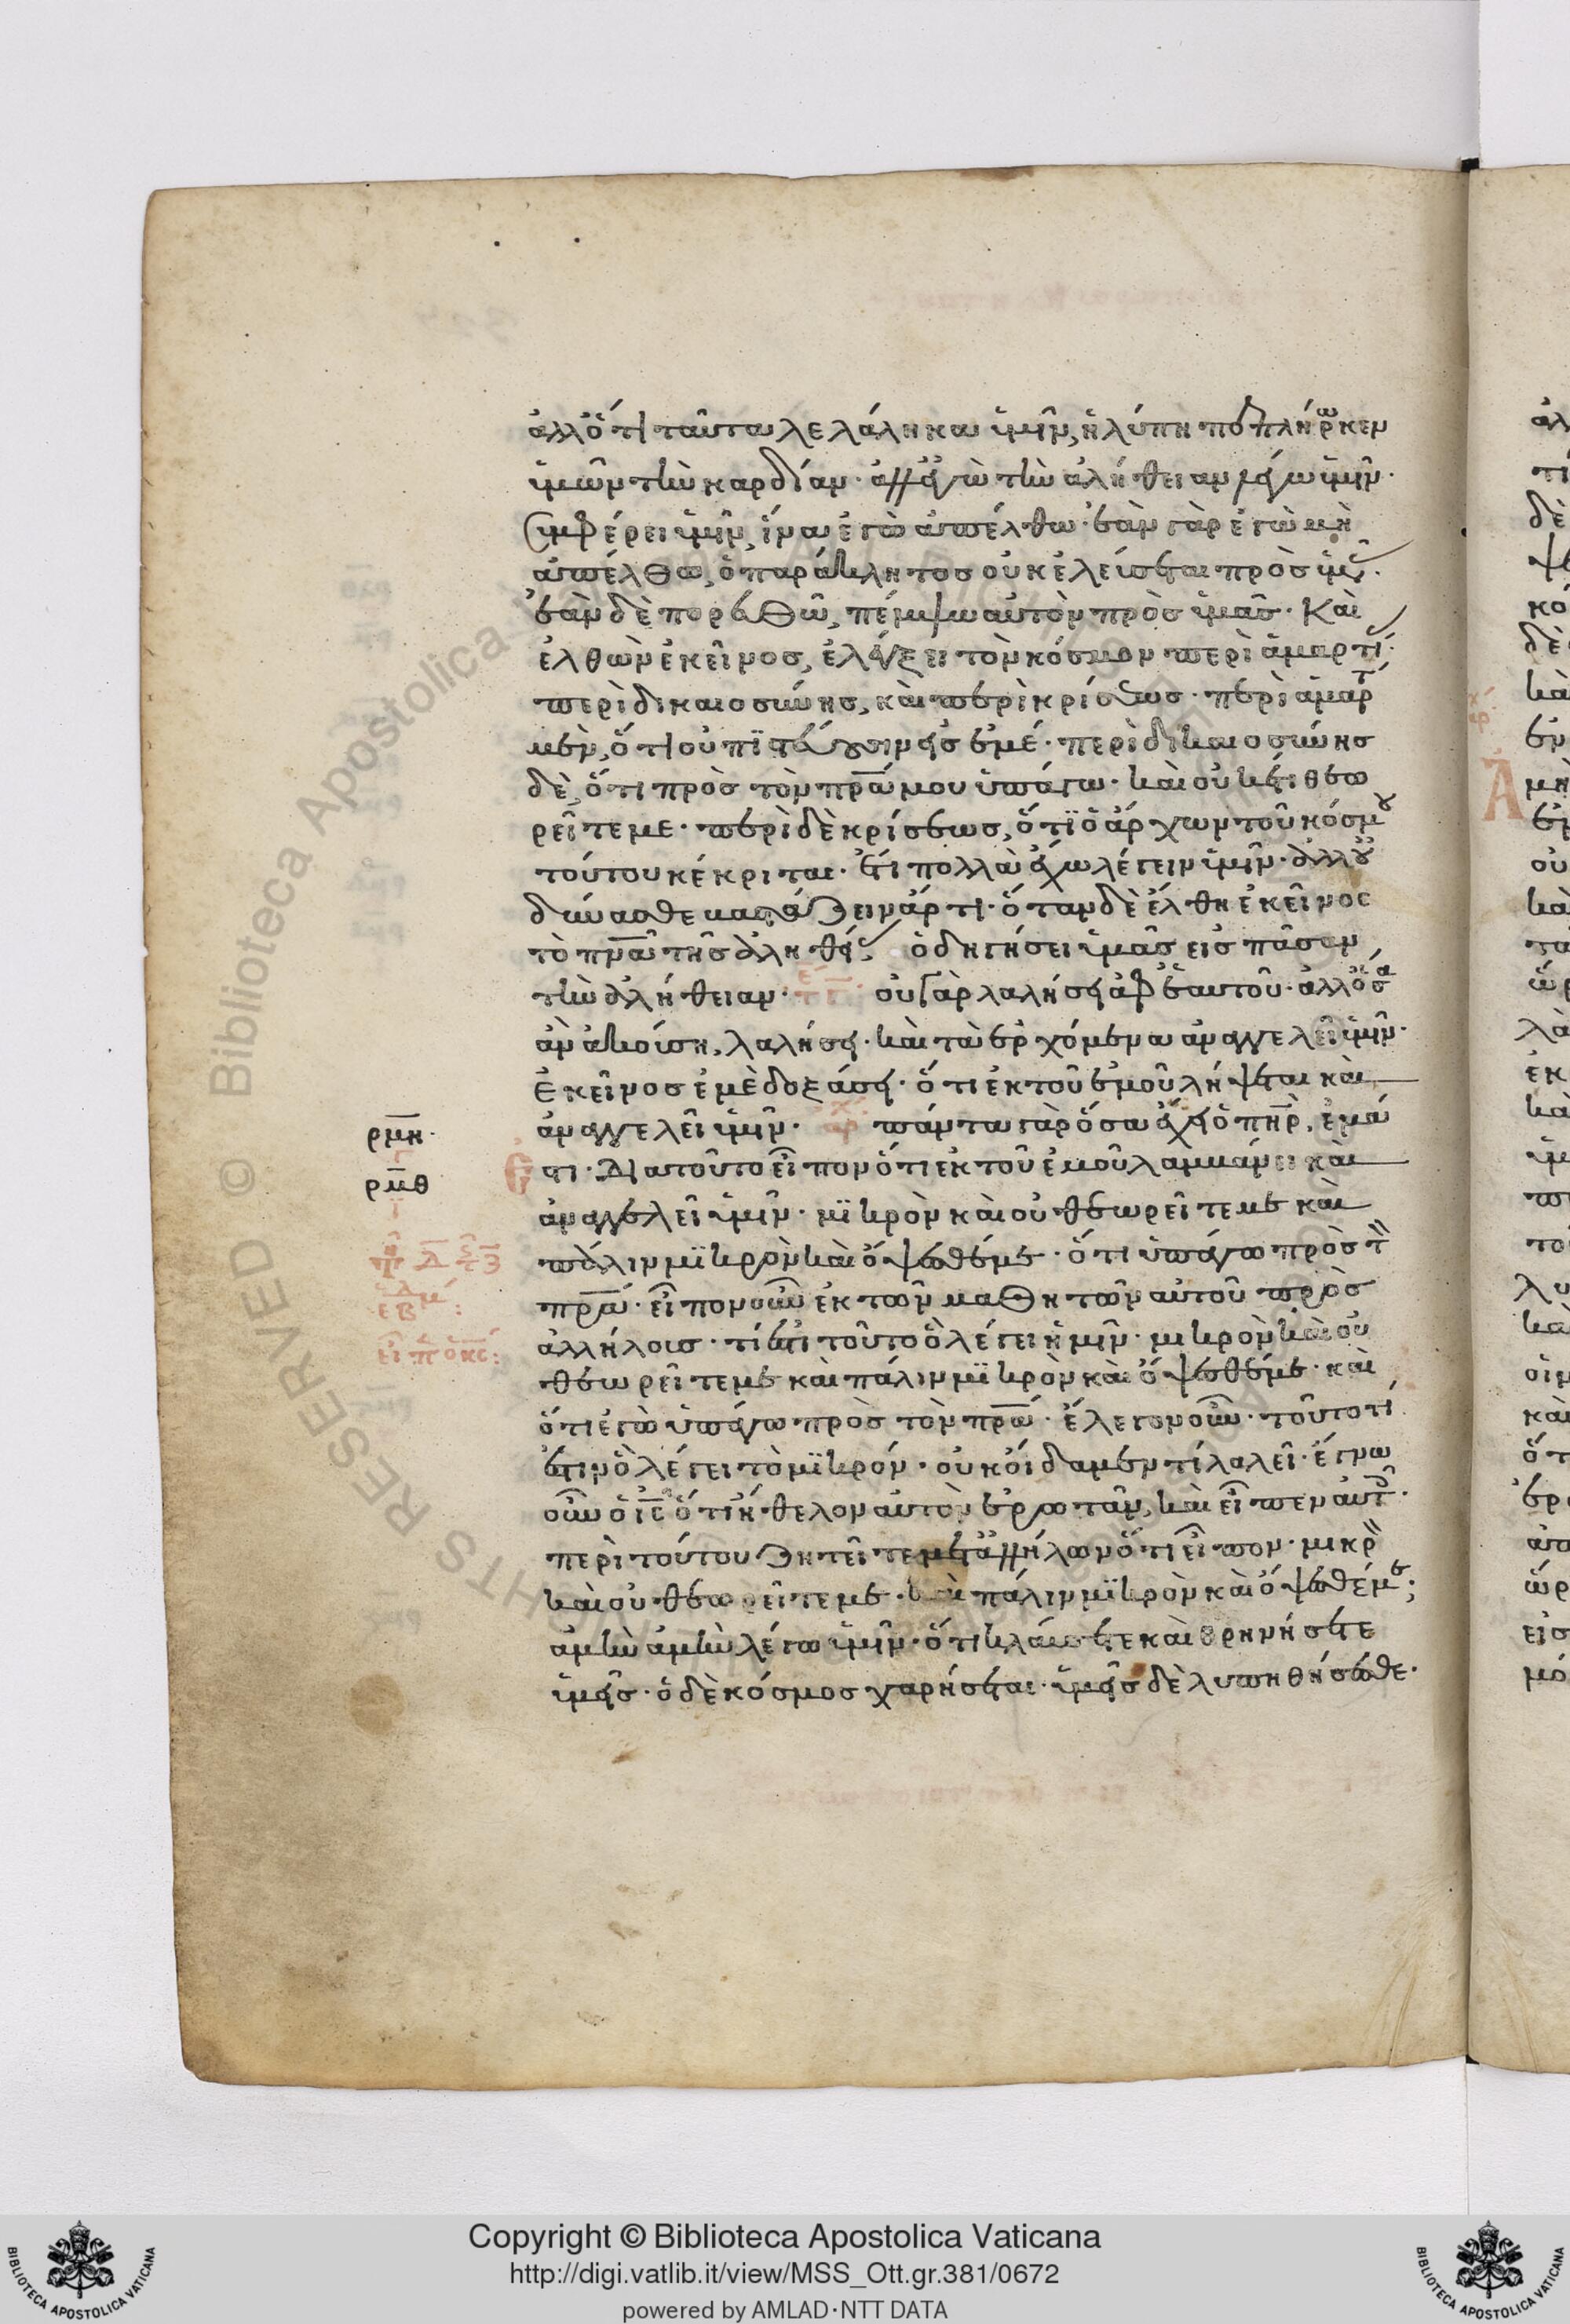 ἀλλ' ὅτι ταῦτα λελάληκα ὑμῖν, ἡ λύπη πεπλήρωκεν
ὑμῶν τὴν καρδίαν· ἀλλ' ἐγὼ τὴν ἀλήθειαν λέγω ὑμῖν·
συμφέρει ὑμῖν, ἵνα ἐγὼ ἀπέλθω· ἐὰν γὰρ ἐγὼ μὴ
ἀπέλθω, ὁ παράκλητος οὐκ ἐλεύσεται πρὸς ὑμᾶς·
ἐὰν δὲ πορευθῶ, πέμψω αὐτὸν πρὸς ὑμᾶς· Καὶ
ἐλθὼν ἐκεῖνος, ἐλέγξει τὸν κόσμον περὶ ἁμαρτί·
περὶ δικαιοσύνης, καὶ περὶ κρίσεως· περὶ ἁμαρτ
μὲν, ὅτι οὐ πιστεύουσιν εἰς ἐμέ· περὶ δικαιοσύνης
δὲ, ὅτι πρὸς τὸν πρα μου ὑπάγω· καὶ οὐκέτι θεω
ρεῖτε με· περὶ δὲ κρίσεως, ὅτι ὁ ἄρχων τοῦ κόσμου
τούτου κέκριται· ἔτι πολλὰ ἔχω λέγειν ὑμῖν· ἀλλ' οὐ
δύνασθε βαστάζειν ἄρτι· ὅταν δὲ ἔλθη ἐκεῖνος
τὸ πνα τῆς ἀληθείας, ὁδηγήσει ὑμᾶς εἰς πᾶσαν
τὴν ἀλήθειαν· οὐ γὰρ λαλήσει ἀφ' ἑαυτοῦ· ἀλλ' ὅσα
ἂν ἀκούση, λαλήσει· καὶ τὰ ἐρχόμενα ἀναγγελεῖ ὑμῖν·
Ἐκεῖνος ἐμὲ δοξάσει· ὅτι ἐκ τοῦ ἐμοῦ λήψεται καὶ
ρμη· ἀναγγελεῖ ὑμῖν· πάντα γὰρ ὅσα ἔχει ὁ πηρ, ἐμά
ρμθ ἐστι· Διατοῦτο εἶπον ὅτι ἐκ τοῦ ἐμοῦ λαμβάνει καὶ
ἀναγγελεῖ ὑμῖν· μικρὸν καὶ οὐ θεωρεῖτε με καὶ
πάλιν μικρὸν καὶ ὄψεσθέ με· ὅτι ὑπάγω πρὸς τὸν
πρα· εἶπον οὖν ἐκ τῶν μαθητῶν αὐτοῦ πρὸς
ἀλλήλους· τί ἐστι τοῦτο ὃ λέγει ἡμῖν· μικρὸν καὶ οὐ
θεωρεῖτε με καὶ πάλιν μικρὸν καὶ ὄψεσθέ με· καὶ
ὅτι ἐγὼ ὑπάγω πρὸς τὸν πρα· ἔλεγον οὖν· τοῦτο τί
ἐστιν ὃ λέγει τὸ μικρόν· οὐκ οἴδαμεν τί λαλεῖ· ἔγνω
οὖν ὁ ις ὅτι ἤθελον αὐτὸν ἐρωτᾶν, καὶ εἶπεν αὐτοῖς·
περὶ τούτου ζητεῖτε μετ' ἀλλήλων ὅτι εἶπον· μικρὸν
καὶ οὐ θεωρεῖτε με· καὶ πάλιν μικρὸν καὶ ὄψεσθέ με;
ἀμὴν ἀμὴν λέγω ὑμῖν· ὅτι κλαύσετε καὶ θρηνήσετε
ὑμεῖς· ὁ δὲ κόσμος χαρήσεται· ὑμεῖς δὲ λυπηθήσεσθε·
Copyright © Biblioteca Apostolica Vaticana
http://digi.vatlib.it/view/MSS_Ott.gr.381/0672
powered by AMLAD·NTT DATA
BIBLIOTECA APOSTOLICA VATICANA
BIBLIOTECA APOSTOLICA VATICANA